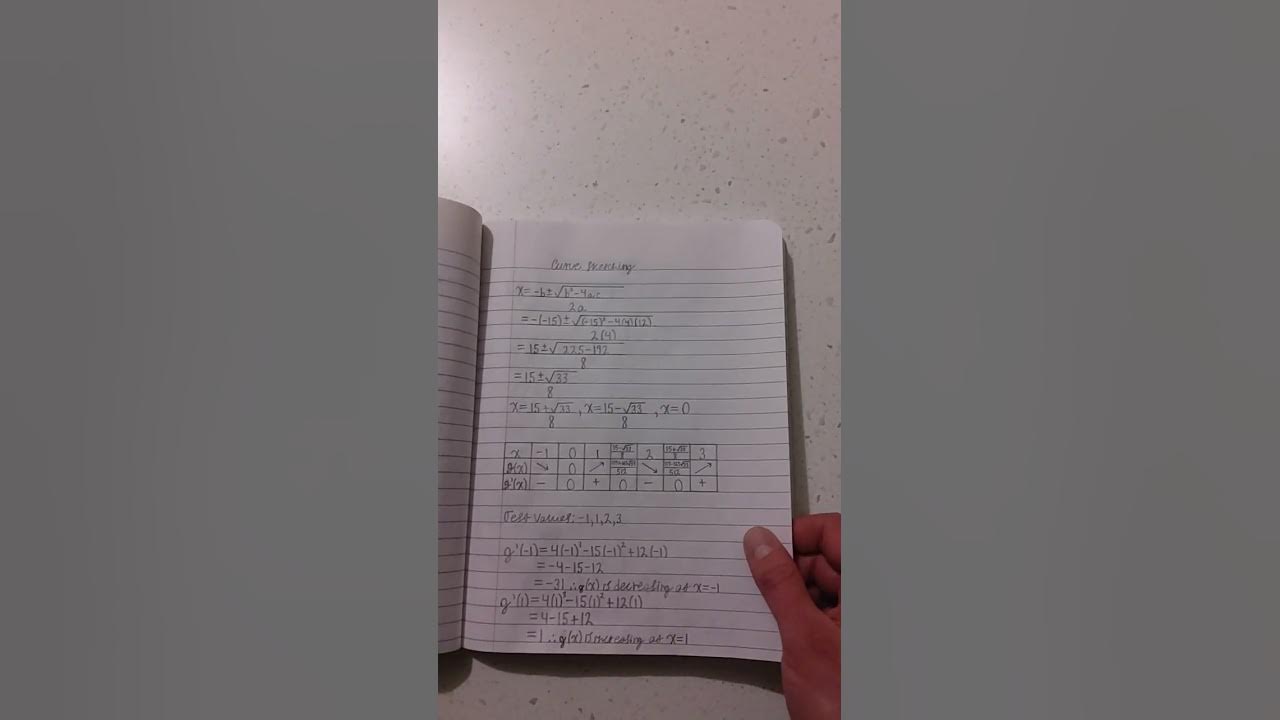 Curve Sketching
x = -b ± √b² - 4ac
2a
= -(-15) ± √(-15)² - 4(4)(12)
2(4)
= 15 ± √225 - 192
8
= 15 ± √33
8
x = 15 + √33 , x = 15 - √33 , x = 0
8 8
x -1 0 1 15-√33 2 15+√33 3
8 8
g(x) ↘ 0 ↗ ↘ ↗
512 512
g'(x) - 0 + 0 - 0 +
Test values: -1, 1, 2, 3
g'(-1) = 4(-1)³ - 15(-1)² + 12(-1)
= -4 - 15 - 12
= -31 ∴ g(x) is decreasing at x = -1
g'(1) = 4(1)³ - 15(1)² + 12(1)
= 4 - 15 + 12
= 1 ∴ g(x) is increasing at x = 1